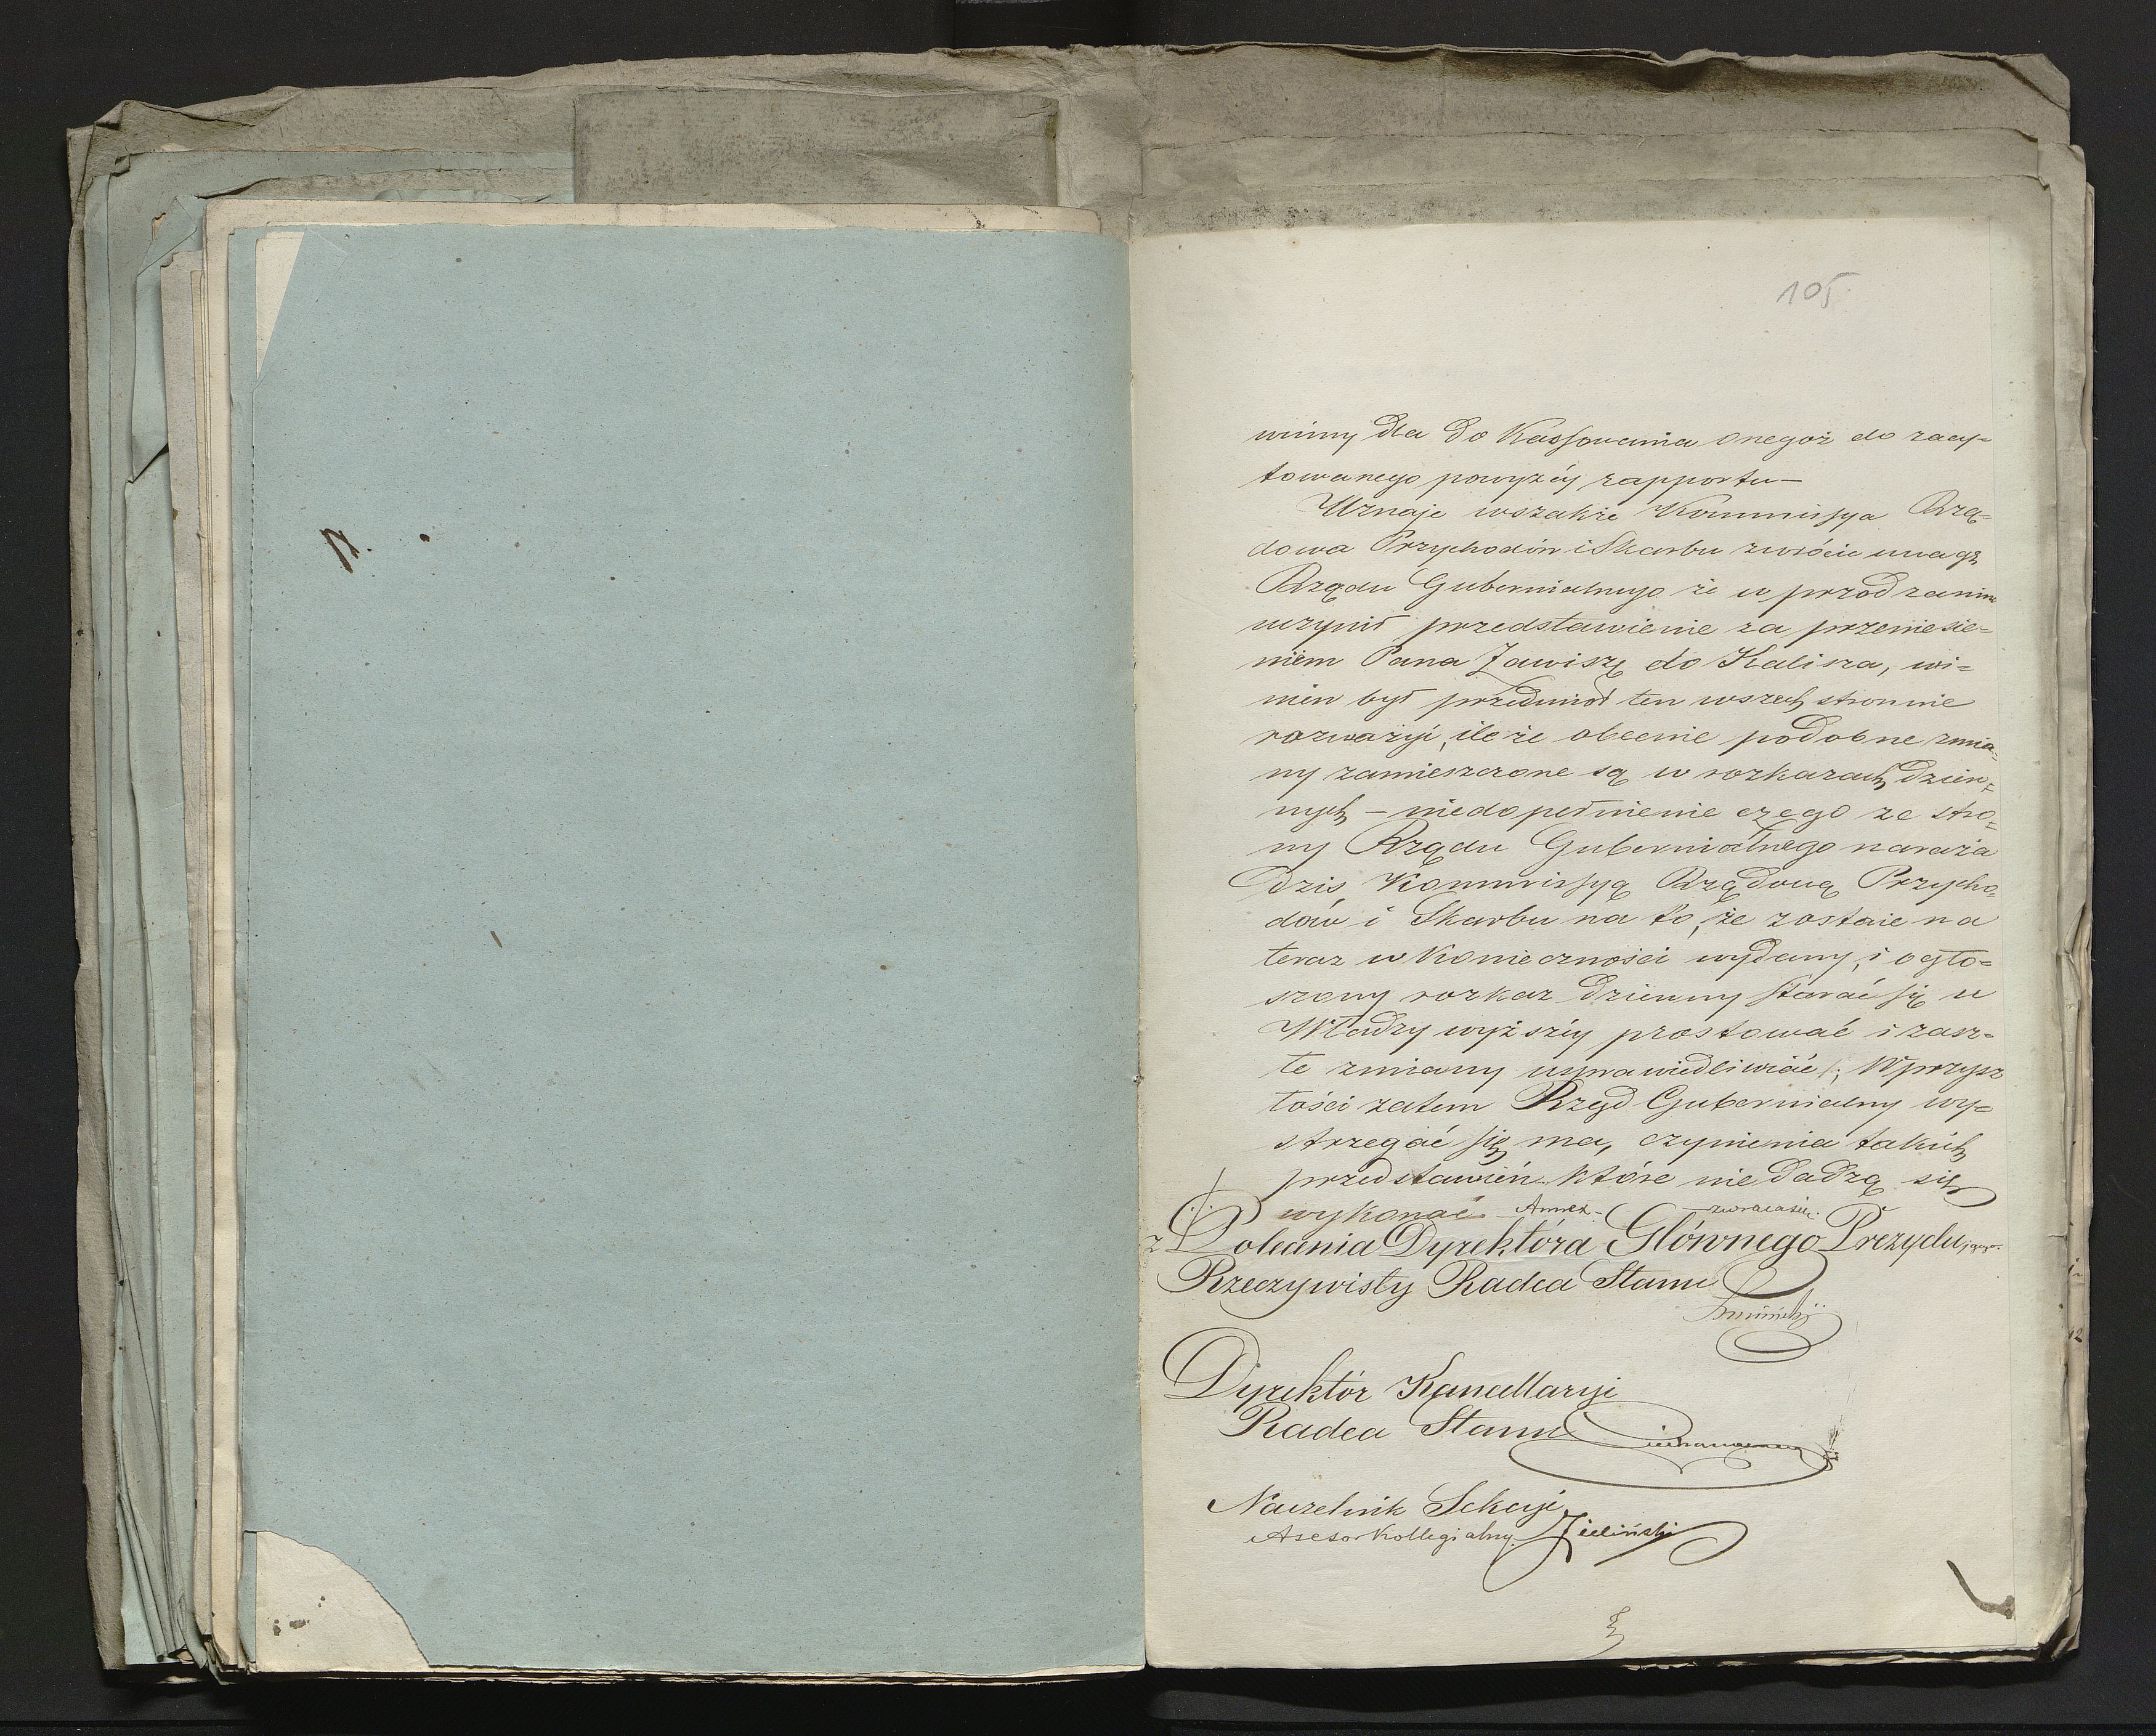 105
winny dla do Kassowania onegoż do zacy-
towanego powyżéj rapportu —
Uznaje wszakże Kommissya Rzą-
dowa Przychodów i Skarbu zwrócić uwagę
Rządu Gubernialnego że w przód zanim
uczynił przedstawienie za przeniesie-
niem Pana Zawiszę do Kalisza, wi-
nien był przedmiot ten wszechstronnie
rozważyć, ile że obecnie podobne zmia-
ny zamieszczone są w rozkazach dzien-
nych — niedopełnienie czego ze stro-
ny Rządu Gubernialnego naraża
dziś Kommissyą Rządową Przycho-
dów i Skarbu na to, że zostaie na
teraz w Konieczności wydany, i ogło-
szony rozkaz dzienny starać się u
Władzy wyższéj prostować i zasz-
łe zmiany usprawiedliwiać; W przysz
łości zatem Rząd Gubernialny wy-
strzegać się ma, czynienia takich
przedstawień które nie dadzą się
wykonać — Annex — zwraca się.
z Polecenia Dyrektóra Głównego Prezydującego
Rzeczywisty Radca Stanu
Dyrektór Kancellaryi
Radca Stanu
Naczelnik Sekcyi
Asesor Kollegialny Zieliński